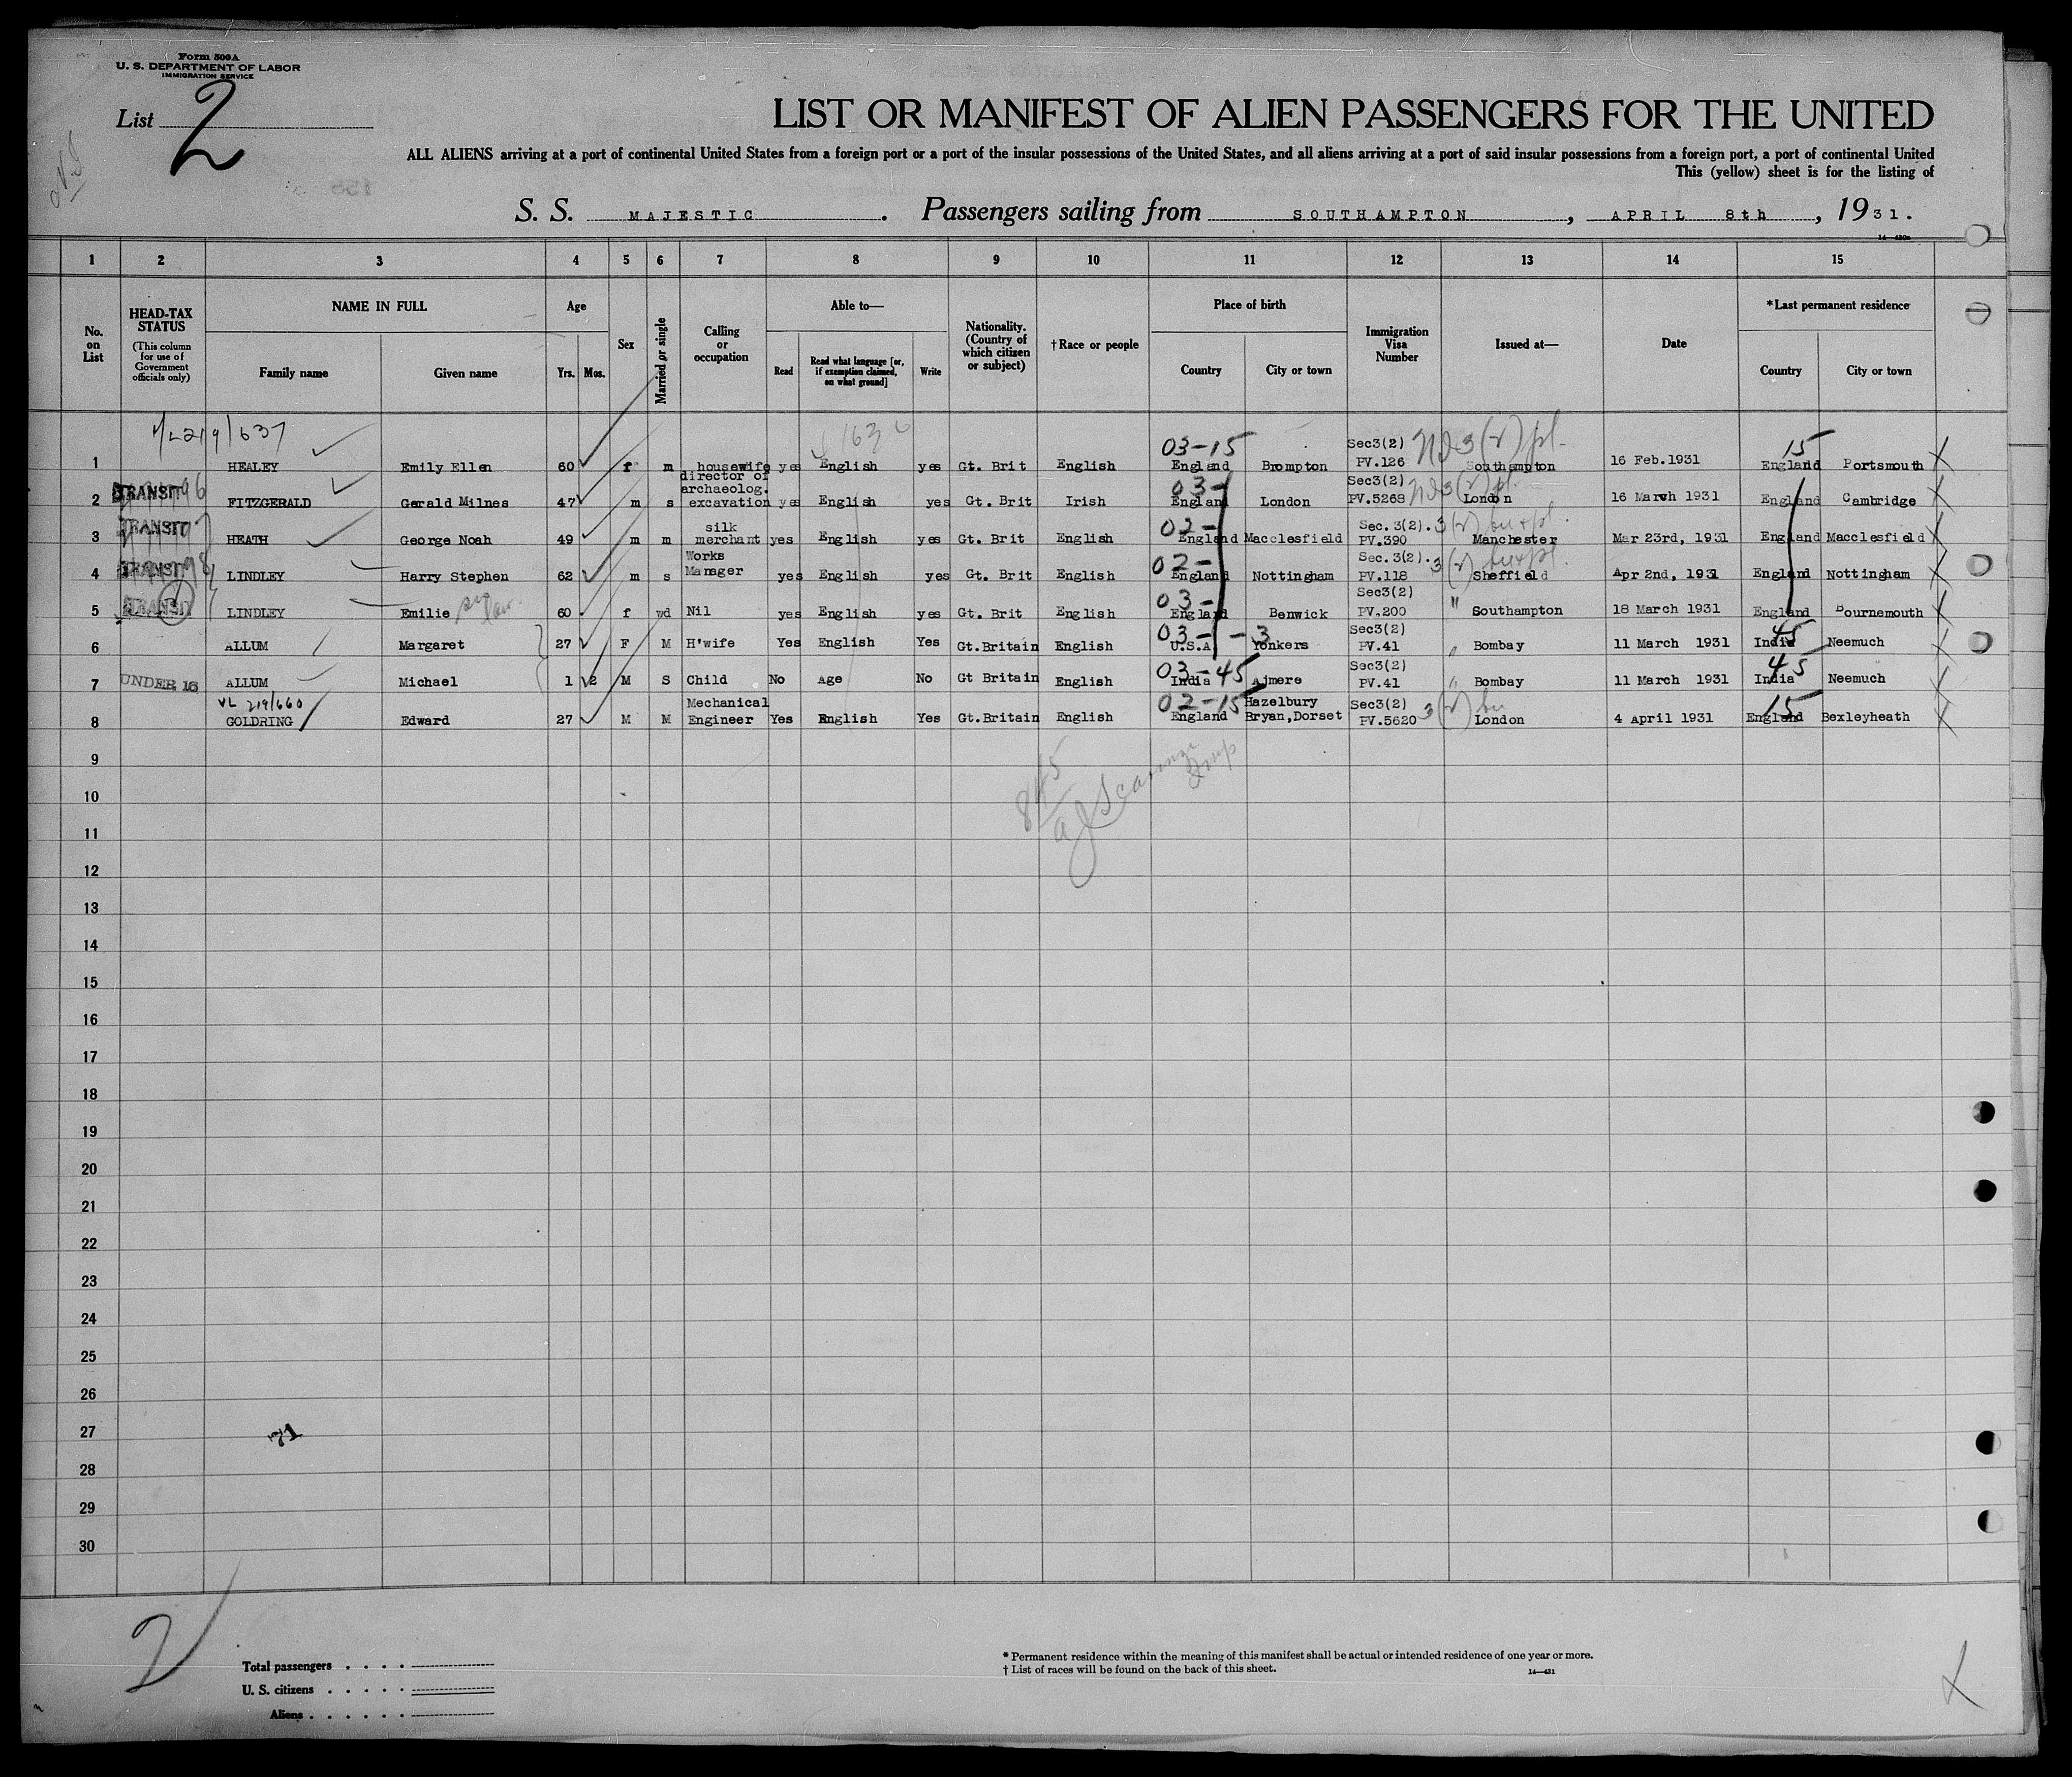 Form 500A
U. S. DEPARTMENT OF LABOR
IMMIGRATION SERVICE
List 2
LIST OR MANIFEST OF ALIEN PASSENGERS FOR THE UNITED
ALL ALIENS arriving at a port of continental United States from a foreign port or a port of the insular possessions of the United States, and all aliens arriving at a port of said insular possessions from a foreign port, a port of continental United
This (yellow) sheet is for the listing of
S. S. MAJESTIC. Passengers sailing from SOUTHAMPTON, APRIL 8th, 1931.
1 2 3 4 5 6 7 8 9 10 11 12 13 14 15
No. on List
HEAD-TAX STATUS
(This column for use of Government officials only)
NAME IN FULL
Family name
Given name
Age
Yrs. Mos.
Sex
Married or single
Calling or occupation
Able to—
Read
Read what language [or, if exemption claimed, on what ground]
Write
Nationality. (Country of which citizen or subject)
†Race or people
Place of birth
Country
City or town
Immigration Visa Number
Issued at—
Date
*Last permanent residence
Country
City or town
1 HEALEY Emily Ellen 60 f m housewife yes English yes Gt. Brit English 03-15 England Brompton Sec3(2) PV.126 Southampton 16 Feb.1931 15 England Portsmouth
2 TRANSIT FITZGERALD Gerald Milnes 47 m s director of archaeolog. excavation yes English yes Gt. Brit Irish 03- England London Sec3(2) PV.5268 London 16 March 1931 England Cambridge
3 TRANSIT HEATH George Noah 49 m m silk merchant yes English yes Gt. Brit English 02- England Macclesfield Sec. 3(2). PV.390 Manchester Mar 23rd, 1931 England Macclesfield
4 TRANSIT LINDLEY Harry Stephen 62 m s Works Manager yes English yes Gt. Brit English 02- England Nottingham Sec. 3(2). PV.118 Sheffield Apr 2nd, 1931 England Nottingham
5 TRANSIT LINDLEY Emilie 60 f wd Nil yes English yes Gt. Brit English 03- England Benwick Sec3(2) PV.200 " Southampton 18 March 1931 England Bournemouth
6 ALLUM Margaret 27 F M H'wife Yes English Yes Gt.Britain English 03- - 3 U.S.A. Yonkers Sec3(2) PV.41 " Bombay 11 March 1931 45 India Neemuch
7 UNDER 16 ALLUM Michael 1 2 M S Child No Age No Gt Britain English 03-45 India Ajmere Sec3(2) PV.41 " Bombay 11 March 1931 45 India Neemuch
8 VL 219/660 GOLDRING Edward 27 M M Mechanical Engineer Yes English Yes Gt.Britain English 02-15 England Hazelbury Bryan,Dorset Sec3(2) PV.5620 London 4 April 1931 15 England Bexleyheath
9
10
11
12
13
14
15
16
17
18
19
20
21
22
23
24
25
26
27
28
29
30
71
2
Total passengers
U. S. citizens
Aliens
* Permanent residence within the meaning of this manifest shall be actual or intended residence of one year or more.
† List of races will be found on the back of this sheet.
14—431